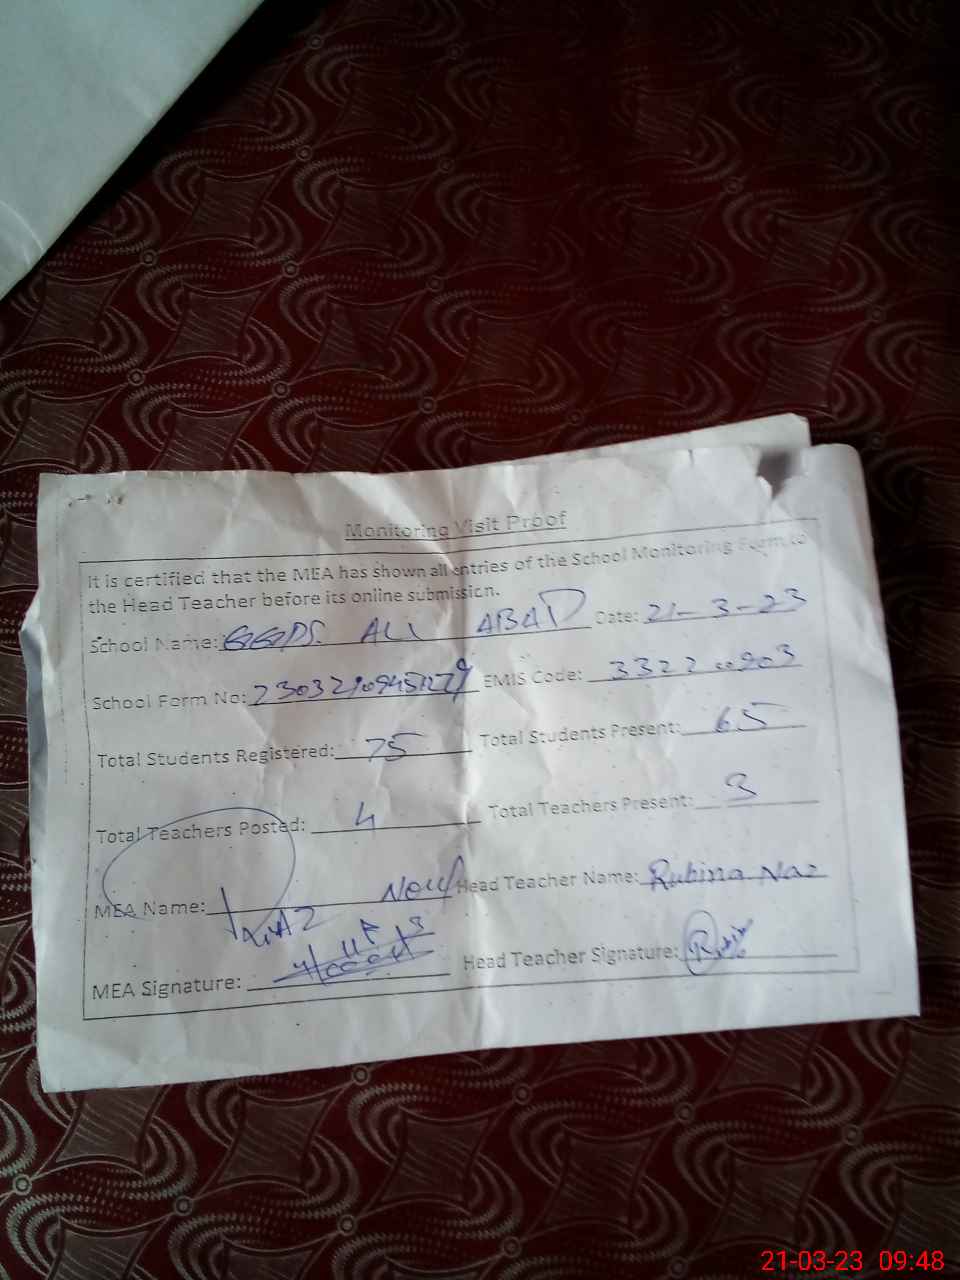 Monitoring Visit Proof
It is certified that the MEA has shown all entries of the School Monitoring Form to
the Head Teacher before its online submission.
School Name: GGPS ALI ABAD Date: 21-3-23
School Form No: EMIS Code:
Total Students Registered: 75 Total Students Present: 65
Total Teachers Posted: 4 Total Teachers Present: 3
MEA Name: Head Teacher Name: Rubina Naz
MEA Signature: Head Teacher Signature: Rubina
21-03-23 09:48